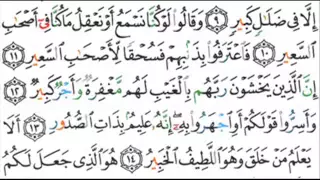 إِلَّا فِى ضَلَٰلٍ كَبِيرٍ ۝٩ وَقَالُوا۟ لَوْ كُنَّا نَسْمَعُ أَوْ نَعْقِلُ مَا كُنَّا فِىٓ أَصْحَٰبِ
ٱلسَّعِيرِ ۝١٠ فَٱعْتَرَفُوا۟ بِذَنۢبِهِمْ فَسُحْقًا لِّأَصْحَٰبِ ٱلسَّعِيرِ ۝١١
إِنَّ ٱلَّذِينَ يَخْشَوْنَ رَبَّهُم بِٱلْغَيْبِ لَهُم مَّغْفِرَةٌ وَأَجْرٌ كَبِيرٌ ۝١٢
وَأَسِرُّوا۟ قَوْلَكُمْ أَوِ ٱجْهَرُوا۟ بِهِۦٓ إِنَّهُۥ عَلِيمٌۢ بِذَاتِ ٱلصُّدُورِ ۝١٣ أَلَا
يَعْلَمُ مَنْ خَلَقَ وَهُوَ ٱللَّطِيفُ ٱلْخَبِيرُ ۝١٤ هُوَ ٱلَّذِى جَعَلَ لَكُمُ